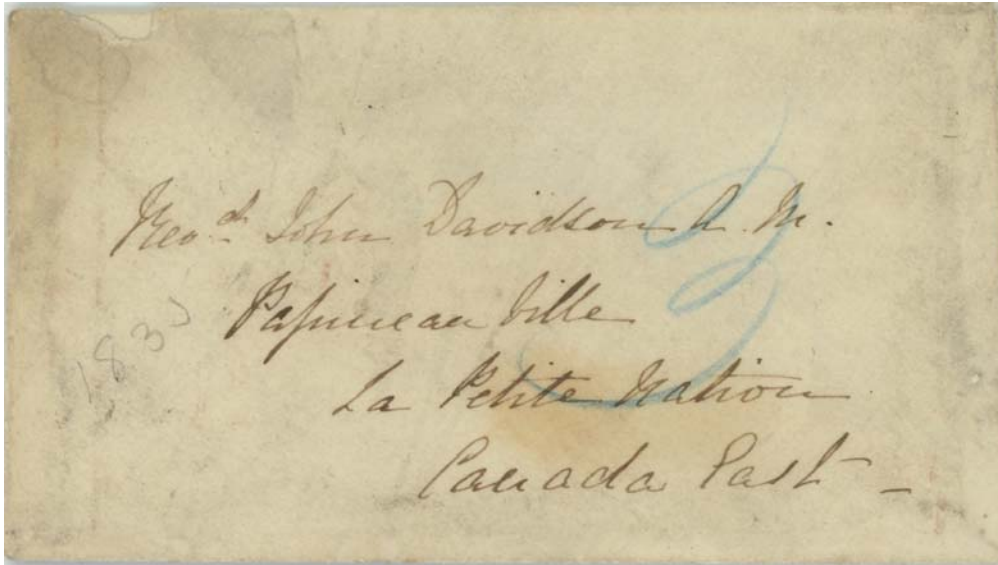 Rev.d John Davidson A. M.
Papineau ville
La Petite Nation
Canada East -
3